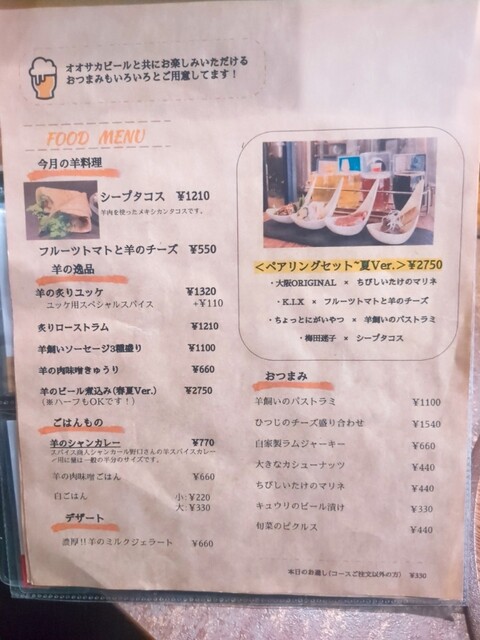 オオサカビールと共にお楽しみいただける
おつまみもいろいろとご用意してます！
FOOD MENU
今月の羊料理
シープタコス ¥1210
羊肉を使ったメキシカンタコスです。
フルーツトマトと羊のチーズ ¥550
羊の逸品
羊の炙りユッケ ¥1320
ユッケ用スペシャルスパイス +¥110
炙りローストラム ¥1210
羊飼いソーセージ3種盛り ¥1100
羊の肉味噌きゅうり ¥660
羊のビール煮込み(春夏Ver.) ¥2750
(※ハーフもOKです！)
ごはんもの
羊のシャンカレー ¥770
スパイス商人シャンカール野口さんの羊スパイスカレー
羊の肉味噌ごはん ¥660
白ごはん 小:¥220
大:¥330
デザート
濃厚!!羊のミルクジェラート ¥660
＜ペアリングセット~夏Ver.＞¥2750
・大阪ORIGINAL × ちびしいたけのマリネ
・K.I.X × フルーツトマトと羊のチーズ
・ちょっとにがいやつ × 羊飼いのパストラミ
・梅田迷子 × シープタコス
おつまみ
羊飼いのパストラミ ¥1100
ひつじのチーズ盛り合わせ ¥1540
自家製ラムジャーキー ¥660
大きなカシューナッツ ¥440
ちびしいたけのマリネ ¥440
キュウリのビール漬け ¥330
旬菜のピクルス ¥440
本日のお通し(コースご注文以外の方) ¥350